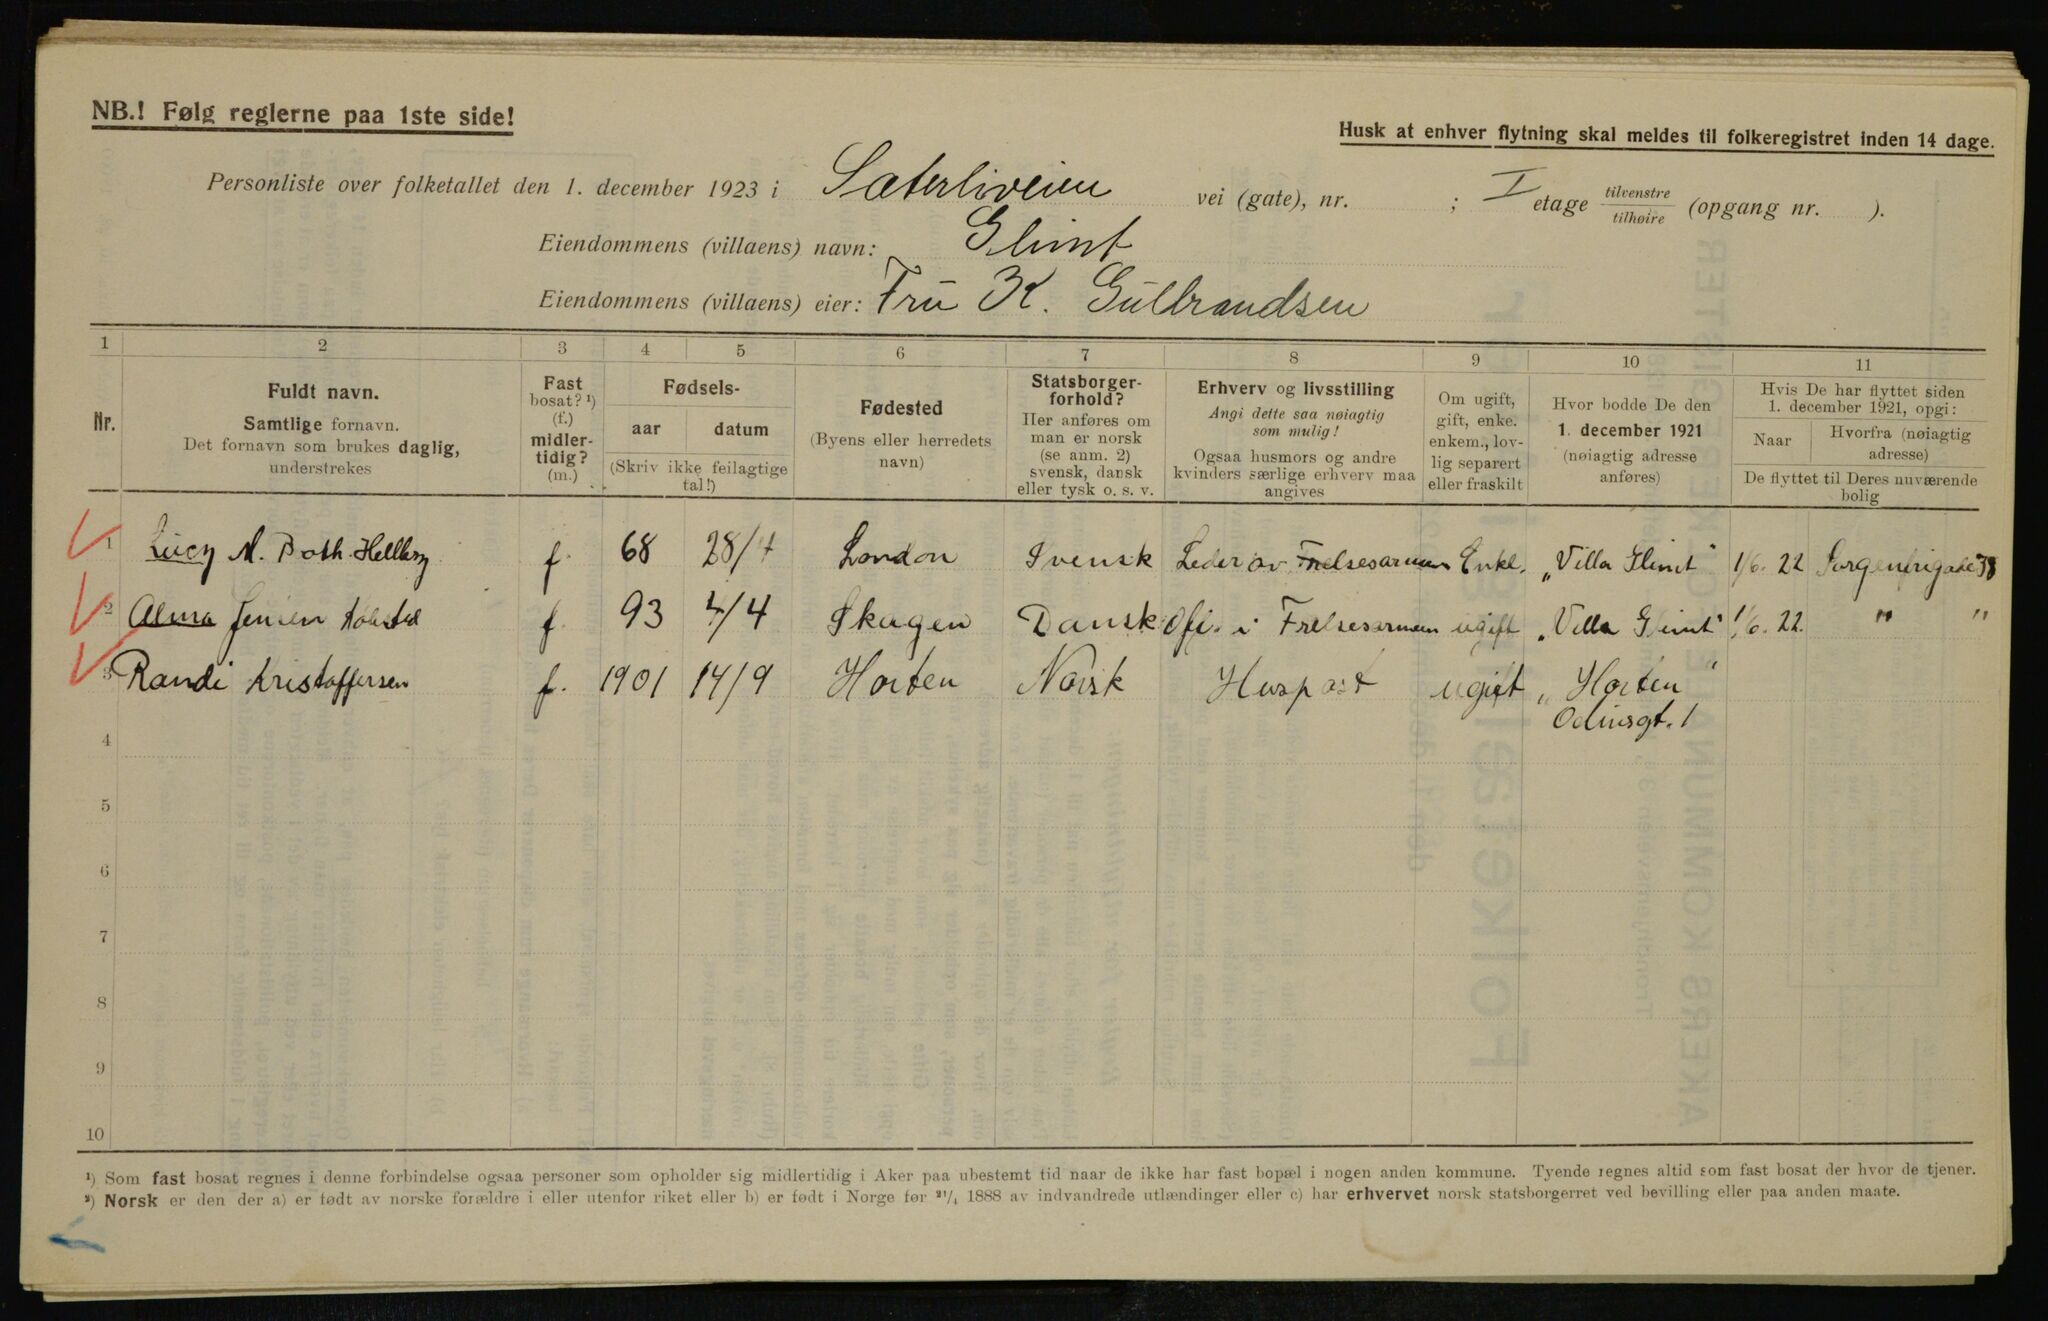 NB.! Følg reglerne paa 1ste side!
Husk at enhver flytning skal meldes til folkeregistret inden 14 dage.
Personliste over folketallet den 1. december 1923 i Sæterliveien vei (gate), nr. ; I etage tilvenstre / tilhøire (opgang nr. ).
Eiendommens (villaens) navn: Glimt
Eiendommens (villaens) eier: Fru K. Gulbrandsen
1 2 3 4 5 6 7 8 9 10 11
Nr.
Fuldt navn.
Samtlige fornavn.
Det fornavn som brukes daglig,
understrekes
Fast
bosat? ¹)
(f.)
midler-
tidig?
(m.)
Fødsels-
aar datum
(Skriv ikke feilagtige
tal!)
Fødested
(Byens eller herredets
navn)
Statsborger-
forhold?
Her anføres om
man er norsk
(se anm. 2)
svensk, dansk
eller tysk o. s. v.
Erhverv og livsstilling
Angi dette saa nøiagtig
som mulig!
Ogsaa husmors og andre
kvinders særlige erhverv maa
angives
Om ugift,
gift, enke.
enkem., lov-
lig separert
eller fraskilt
Hvor bodde De den
1. december 1921
(nøiagtig adresse
anføres)
Hvis De har flyttet siden
1. december 1921, opgi:
Naar Hvorfra (nøiagtig
adresse)
De flyttet til Deres nuværende
bolig
1 Lucy M. Booth-Hellberg f. 68 28/4 London Svensk Leder av Frelsesarmeen Enke. „Villa Glimt" 1/6. 22 Sorgenfrigade 38
2 Alma Jensen f. 93 4/4 Skagen Dansk Ofi. i Frelsesarmeen ugift „Villa Glimt" 1/6. 22. " "
3 Randi Kristoffersen f. 1901 14/9 Horten Norsk Huspost ugift „Horten"
Odinsgt. 1
4
5
6
7
8
9
10
¹) Som fast bosat regnes i denne forbindelse ogsaa personer som opholder sig midlertidig i Aker paa ubestemt tid naar de ikke har fast bopæl i nogen anden kommune. Tyende regnes altid som fast bosat der hvor de tjener.
²) Norsk er den der a) er født av norske forældre i eller utenfor riket eller b) er født i Norge før ²¹/₄ 1888 av indvandrede utlændinger eller c) har erhvervet norsk statsborgerret ved bevilling eller paa anden maate.